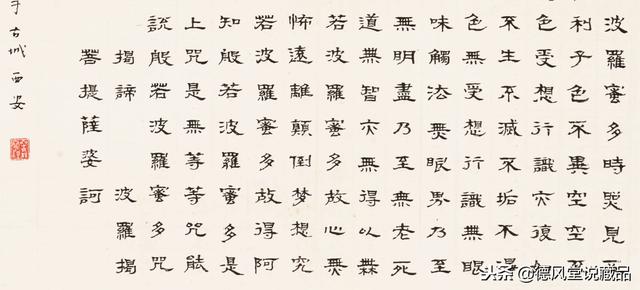 波羅蜜多時照見
利子色不異空空
色受想行識亦復
不生不滅不垢不
色無受想行識無眼
味觸法無眼界乃至
無明盡乃至無老死
道無智亦無得以無
若波羅蜜多故心無
怖遠離顛倒夢想究
若波羅蜜多故得阿
知般若波羅蜜多是
上咒是無等等咒能
說般若波羅蜜多咒
揭諦 波羅揭
菩提薩婆訶
于古城西安
头条@德风堂说藏品